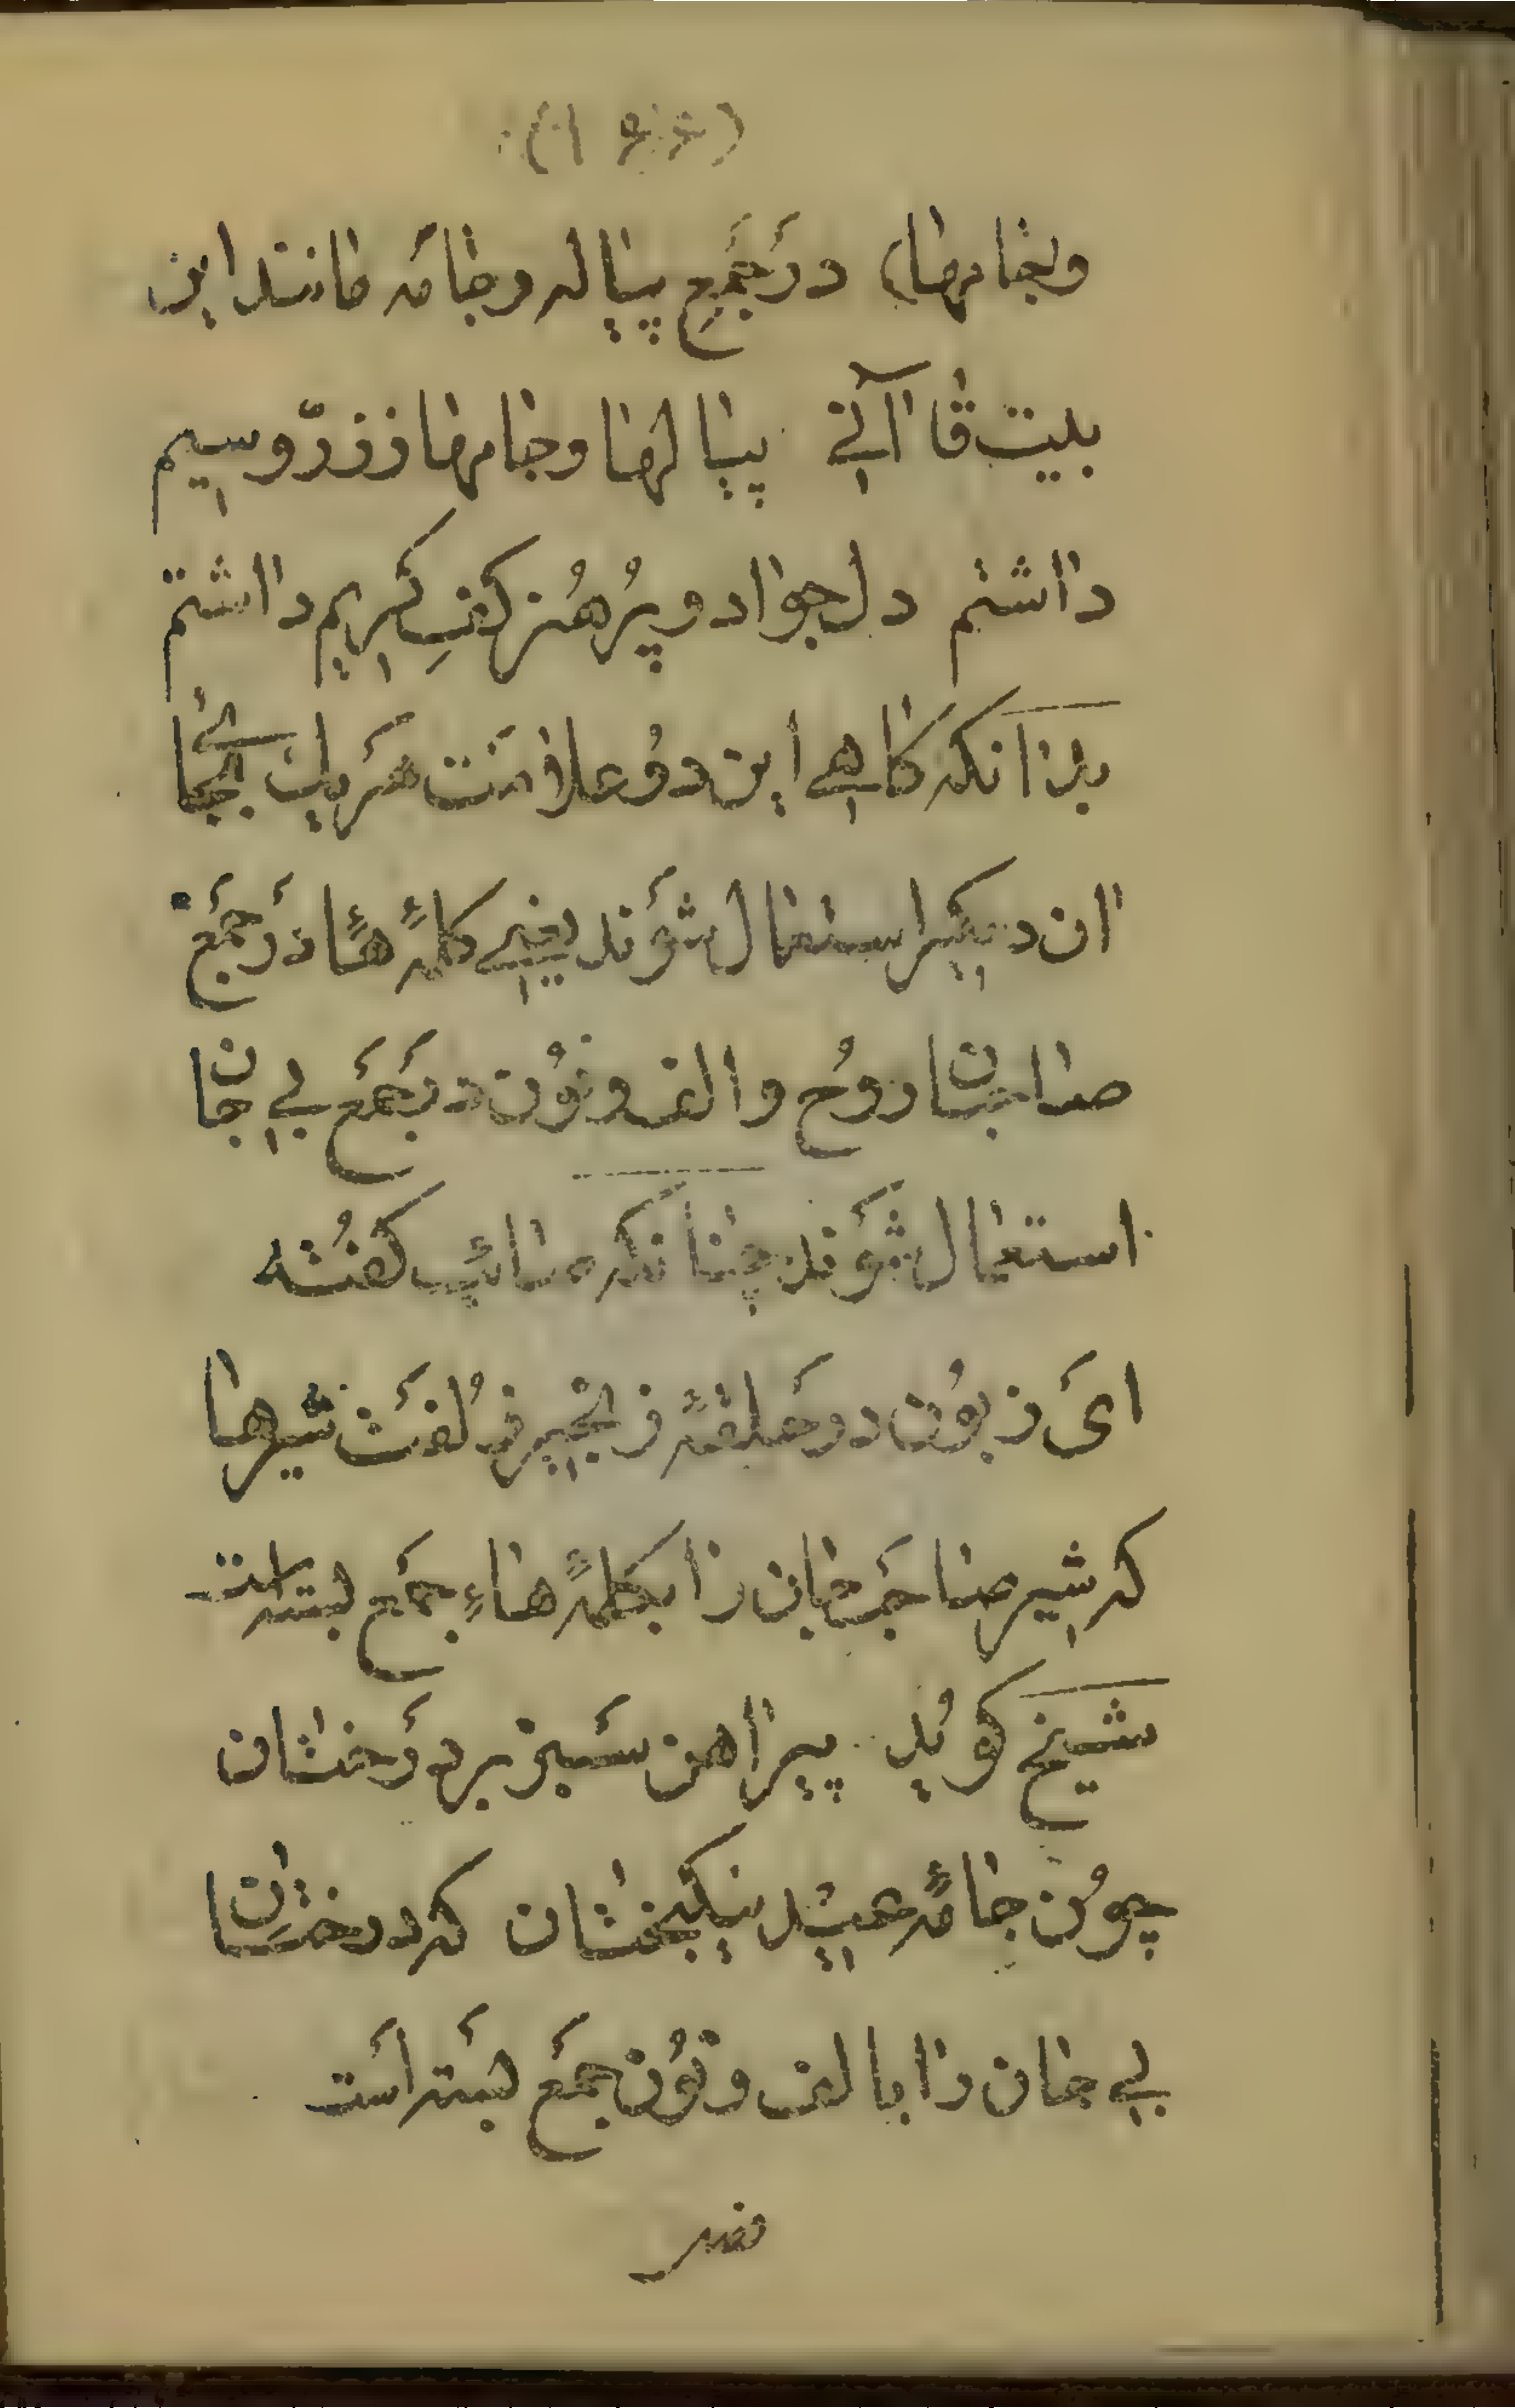 وبجامها) دَر جَمعِ پیاله وجامَه مانند این
بیت قاآنے پیالها وجامها ز زرّ و سیم
داشتم دل جواد و پُر هُنر کفِ کریم داشتم
بدانکه کاهے این دُو علامَت هَر یك بجائے
ان دیکر استعمال شوَند یعنے کلمۀ ها دَر جَمع
صاحبان روُح والف ونوُن در جَمع بے جان
استعمال شوَند چنانکه صائب کفُته
ایَ زبوُن دو حَلقۀ زنجیر زُلفَت شیرها
که شیر صاحَب جان را بکلمۀ هاءِ جمَع بسته است
شیخ کوُید پیراهن سَبز بر دَرختان
چوُن جامۀ عید نیکبختان که درختان
بے جان را با الف ونوُن جمَع بَسته اَست